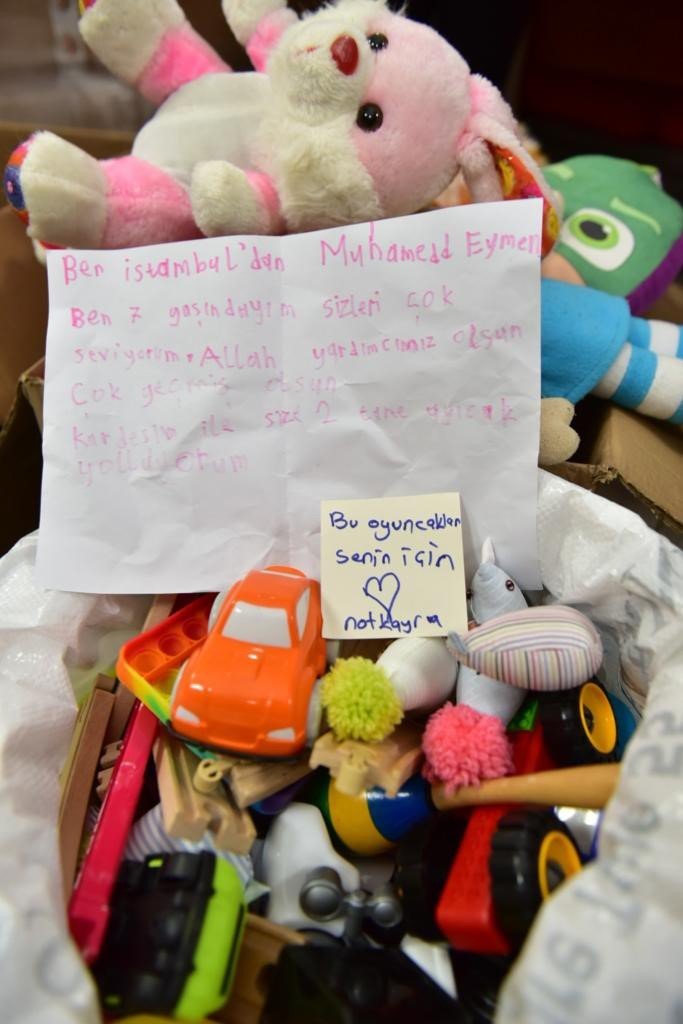 Ben istambul'dan Muhamedd Eymen
Ben 7 yaşındayım sizleri çok
seviyorum. Allah yardımcımız olsun
Çok geçmiş olsun
kardeşim ile size 2 tane ayıcak
yolluyorum
Bu oyuncaklar
senin için
not kayra